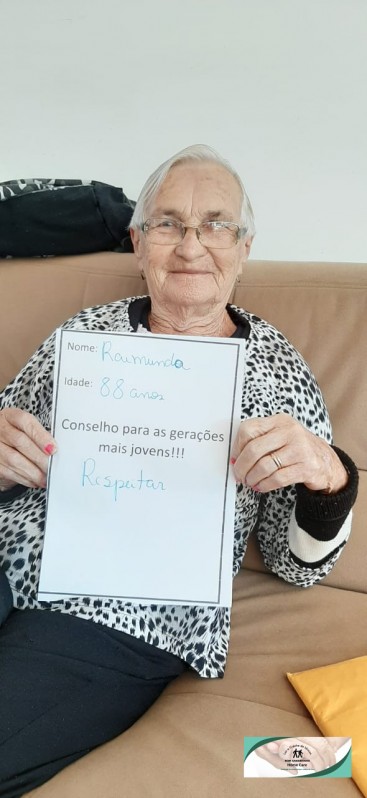 Nome: Raimunda
Idade: 88 anos
Conselho para as gerações
mais jovens!!!
Respeitar
Home Care